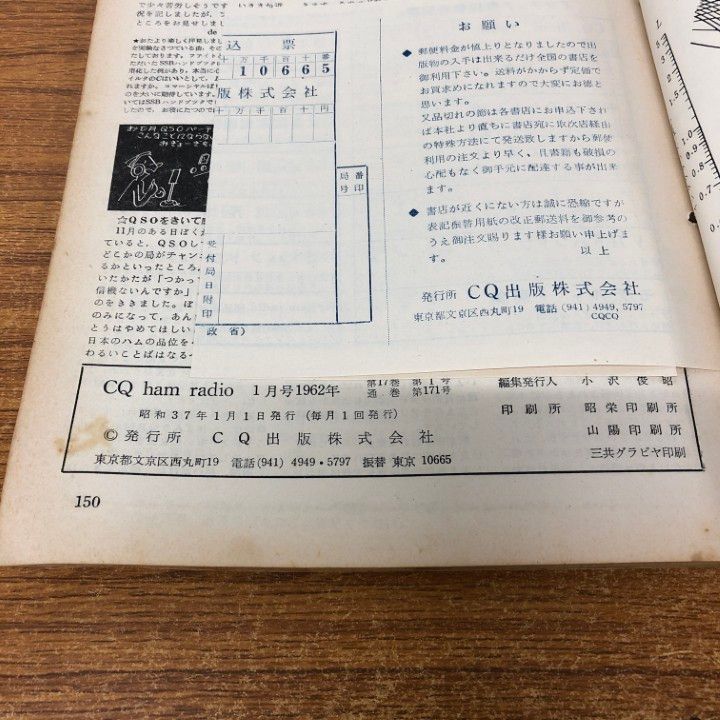 で少々苦労しそうです
況を記しましたが、
ところをお見せしまし
de
☆QSOをきいて
11月のある日ぼくが
ていると、QSOし
どこかの局がチャン
るかといったところ
いたかたが「つかっ
信機ないんですか」
のをききました。ぼ
のみになって、あん
とうはやめてほしい
日本のハムの品位を
わるいことばはなる
込票
十万千百十番
10665
版株式会社
十万千百十円
局番
号印
受付局日附印
政省)
お願い
◆ 郵便料金が値上りとなりましたので出
版物の入手は出来るだけ全国の書店を
御利用下さい。送料がかからず定価で
お買求めになれますので大変にお徳と
思います。
又品切れの節は各書店にお申込下され
ば本社より直ちに書店宛に取次店経由
の特殊方法にて発送致しますから郵便
利用の注文より早く、且書籍も破損の
心配もなく御手元に配達する事が出来
ます。
◆ 書店が近くにない方は誠に恐縮ですが
表記振替用紙の改正郵送料を御参考の
うえ御注文賜ります様お願い申上げま
す。 以上
発行所 CQ出版株式会社
東京都文京区西丸町19 電話(941)4949,5797
CQCQ
CQ ham radio 1月号1962年 第17巻 第1号
通巻 第171号
昭和37年1月1日発行(毎月1回発行)
©発行所 CQ出版株式会社
東京都文京区西丸町19 電話(941)4949・5797 振替東京10665
編集発行人 小沢俊昭
印刷所 昭栄印刷所
山陽印刷所
三共グラビヤ印刷
150